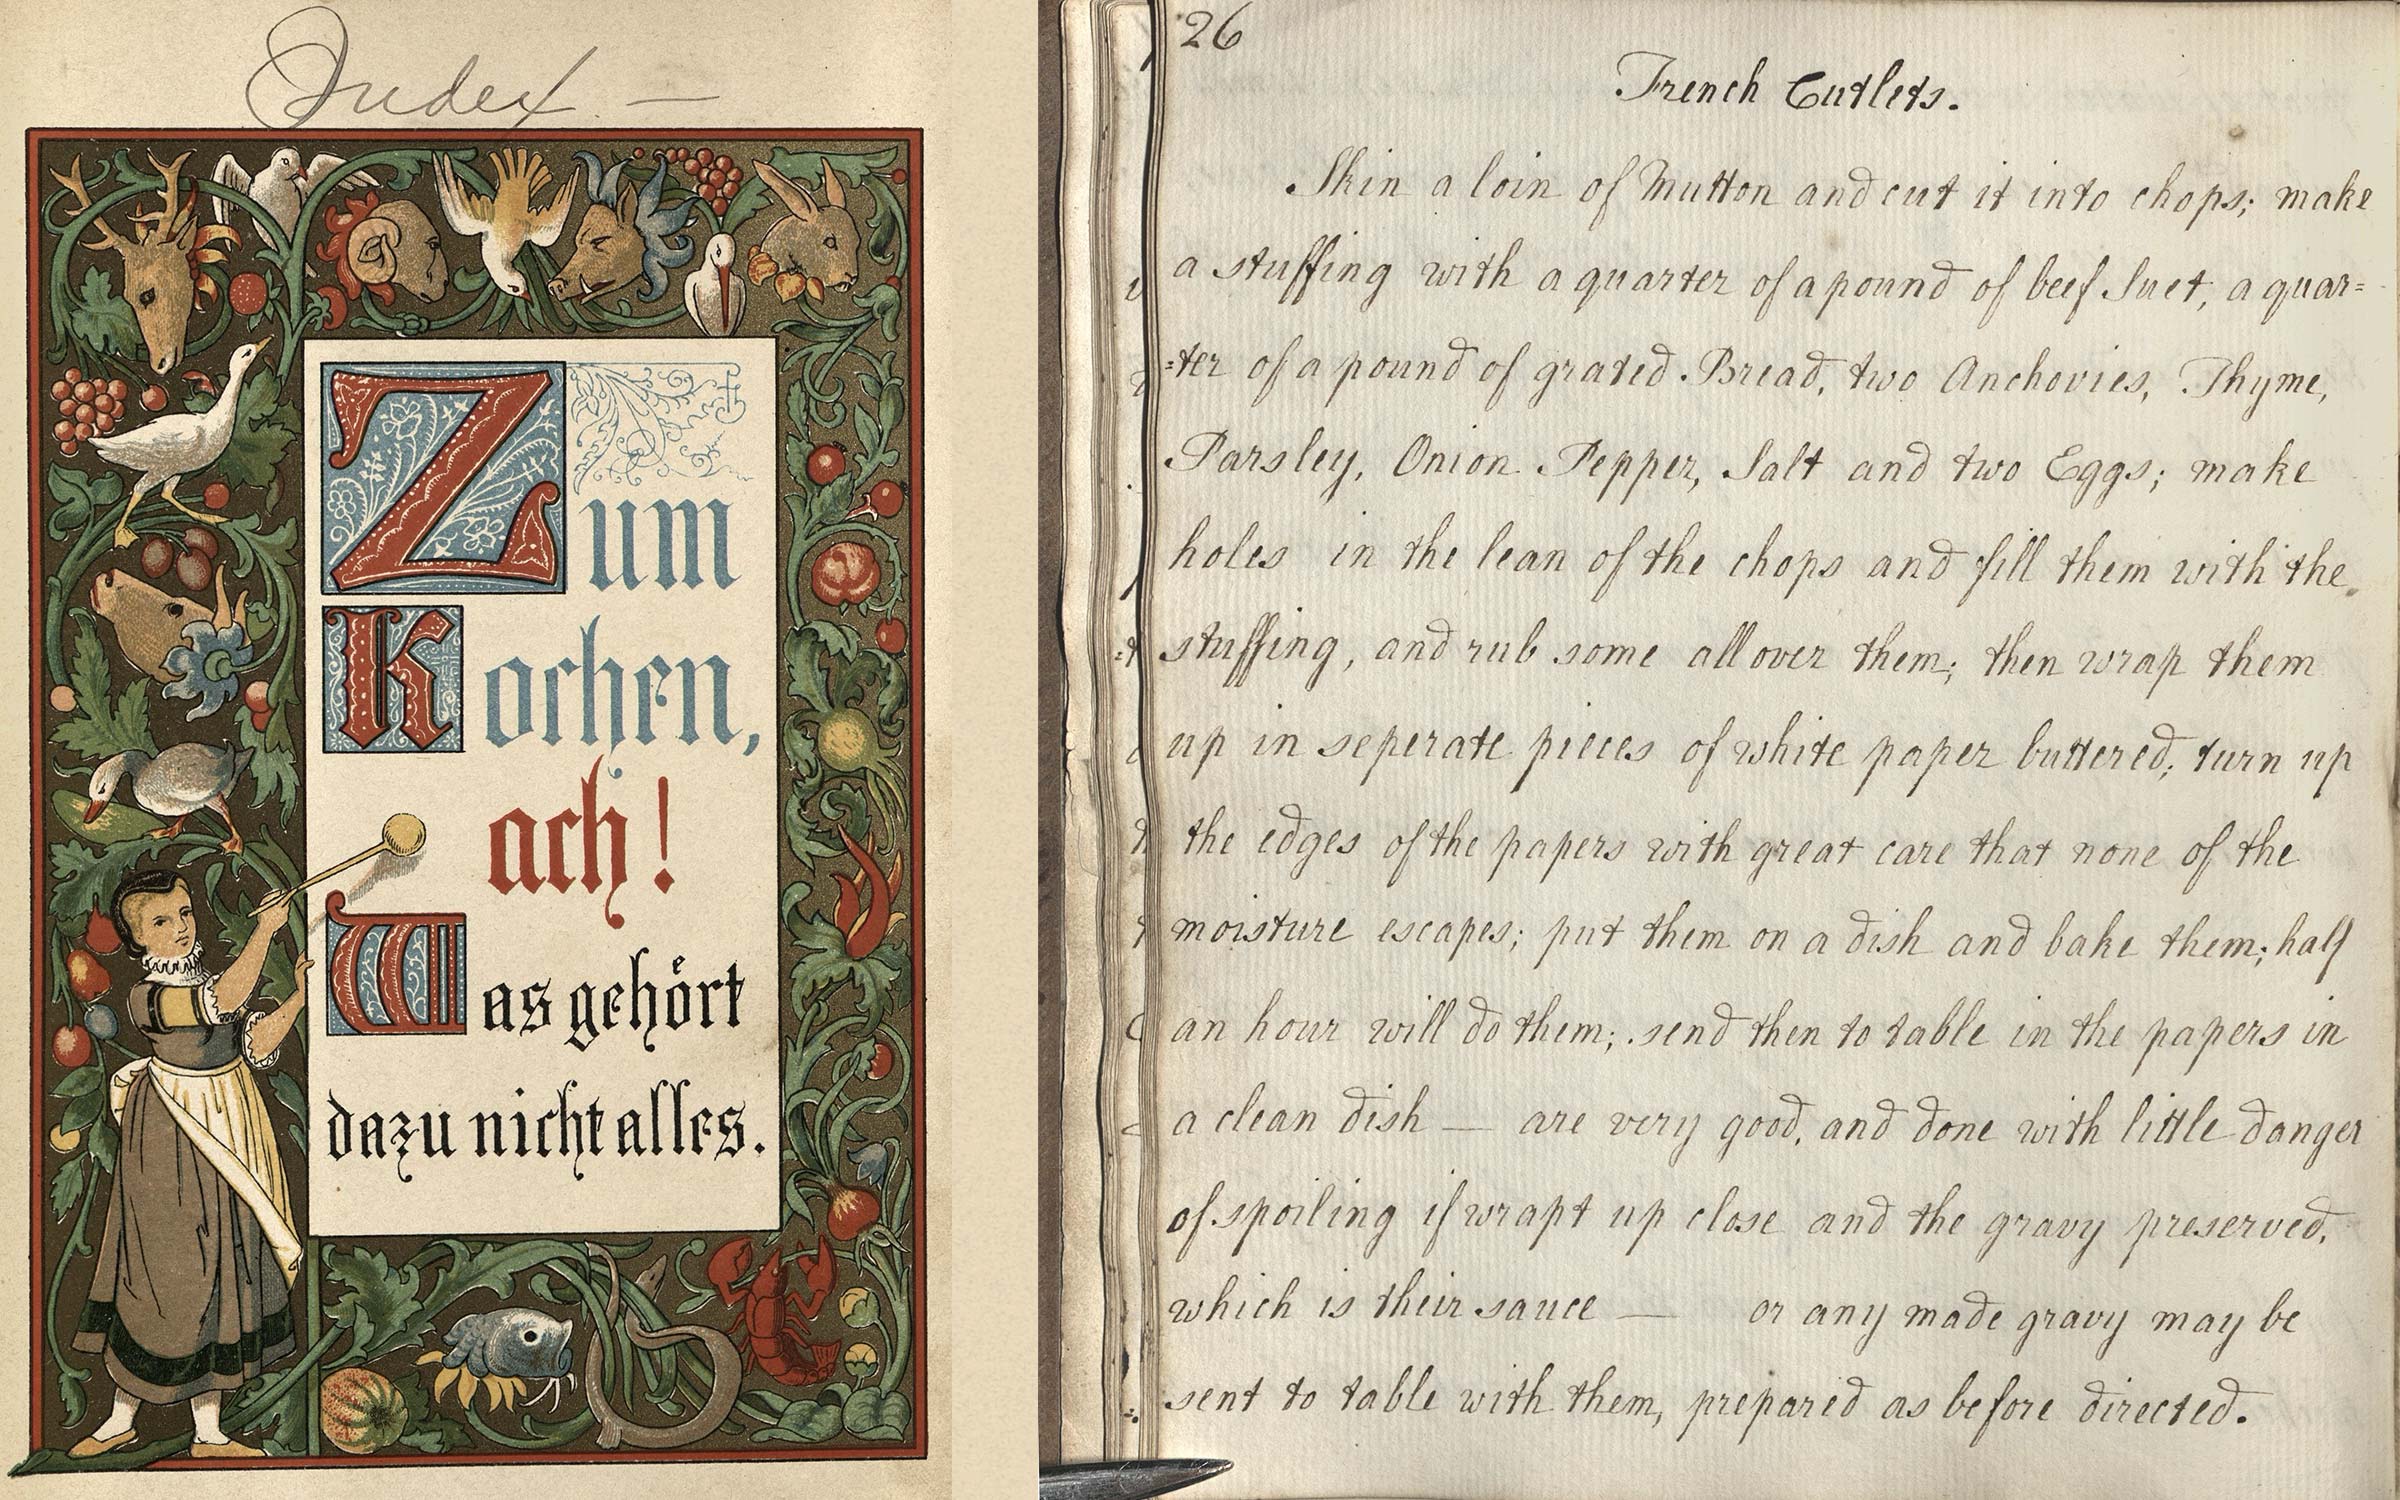 Index —
Zum
Kochen,
ach!
Was gehört
dazu nicht alles.
26
French Cutlets.
Skin a loin of Mutton and cut it into chops; make
a stuffing with a quarter of a pound of beef Suet, a quar=
=ter of a pound of grated Bread, two Anchovies, Thyme,
Parsley, Onion Pepper, Salt and two Eggs; make
holes in the lean of the chops and fill them with the
stuffing, and rub some all over them; then wrap them
up in seperate pieces of white paper buttered; turn up
the edges of the papers with great care that none of the
moisture escapes; put them on a dish and bake them; half
an hour will do them; send then to table in the papers in
a clean dish — are very good, and done with little danger
of spoiling if wrapt up close and the gravy preserved,
which is their sauce — or any made gravy may be
sent to table with them, prepared as before directed.